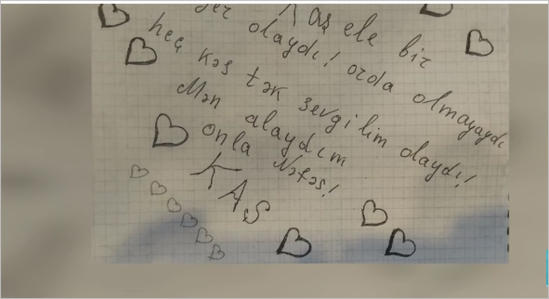 Kaş elə bir
yer olaydı! orda olmayaydı
heç kəs tək sevgilim olaydı!
Mən alaydım
onla Nəfəs!
KAŞ